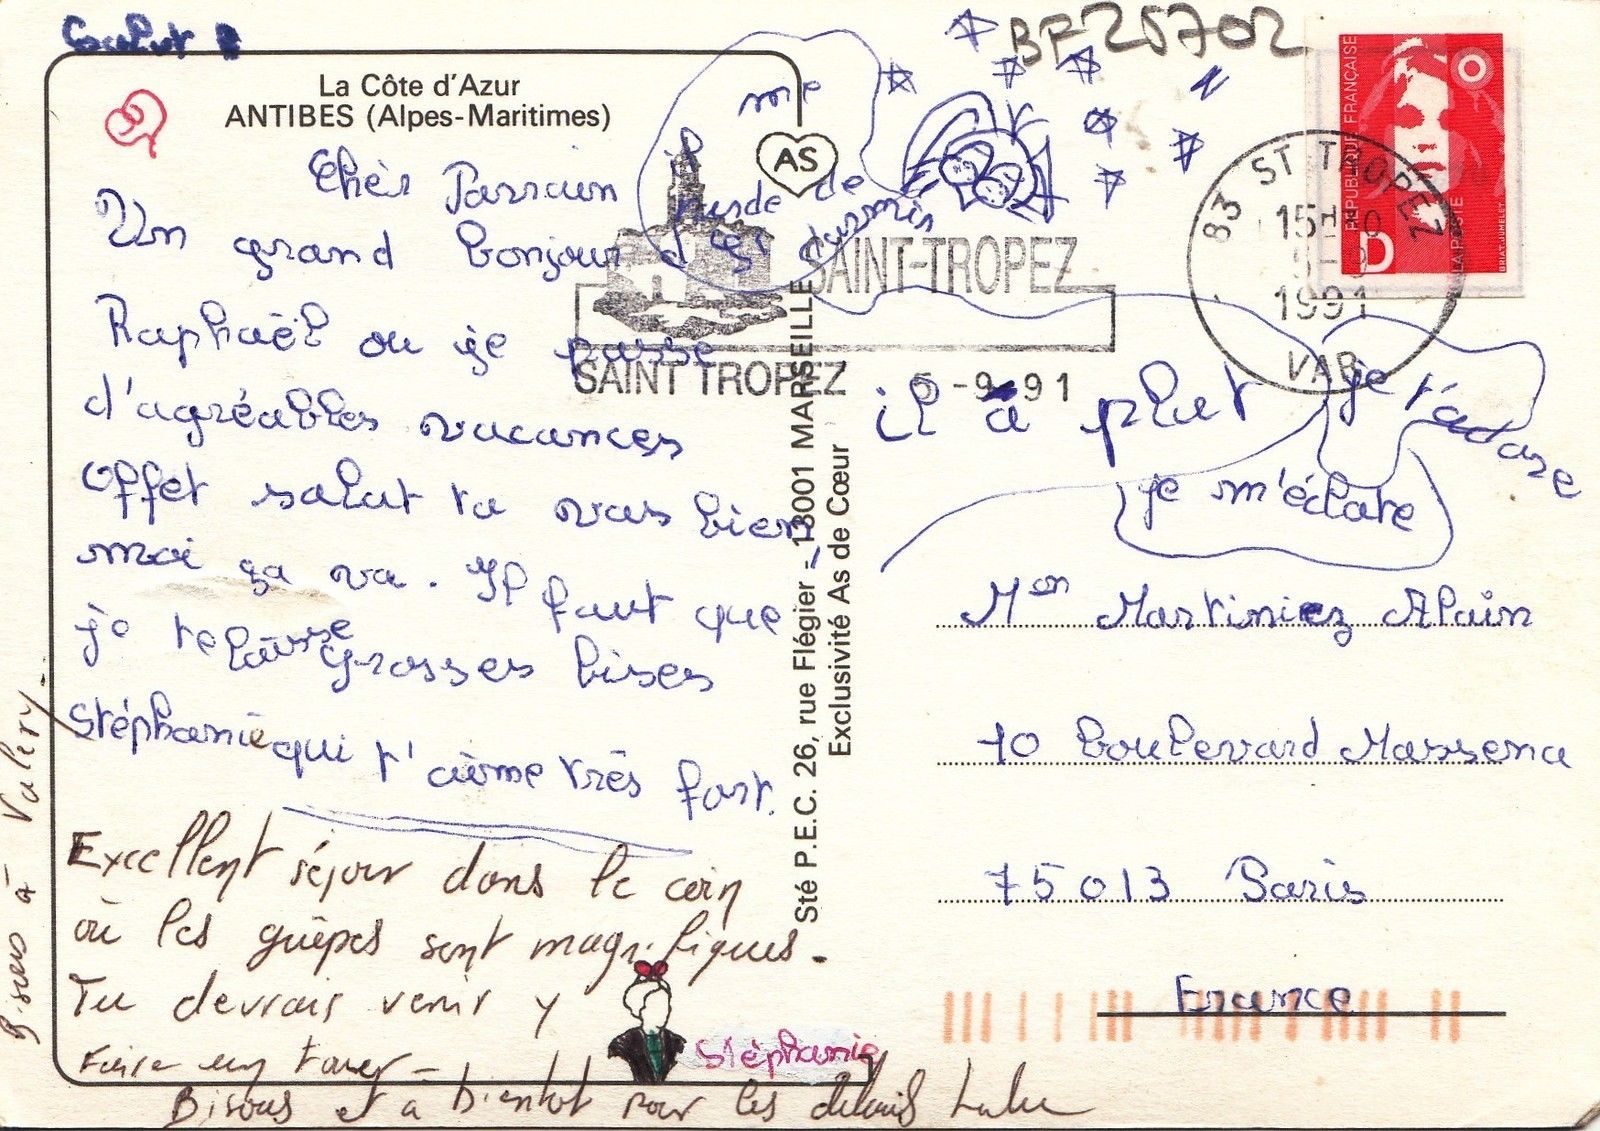 Salut
BF25702
La Côte d'Azur
ANTIBES (Alpes-Maritimes)
Chèr Parrain
Un grand bonjour de St
Raphaël ou je passe
d'agréables vacances
offet salut tu vas bien,
moi ça va. Il faut que
je te laisse grosses bises
Stéphanie qui t'aime très fort.
Excellent séjour dans le coin
où les guèpes sont magnifiques.
Tu devrais venir y
Faire un tour -
Bisous et a bientot pour les détails Lulu
Bisous à Valery.
Stéphanie
AS
Sté P.E.C. 26, rue Flégier - 13001 MARSEILLE
Exclusivité As de Cœur
SAINT-TROPEZ
SAINT TROPEZ
5-9-91
83 ST TROPEZ
15H
1991
VAR
RÉPUBLIQUE FRANÇAISE
LA POSTE
D
BRIAT-JUMELET
il a plut
je t'adore
je m'éclate
Mon Martiniez Alain
10 boulevard Massena
75013 Paris
France